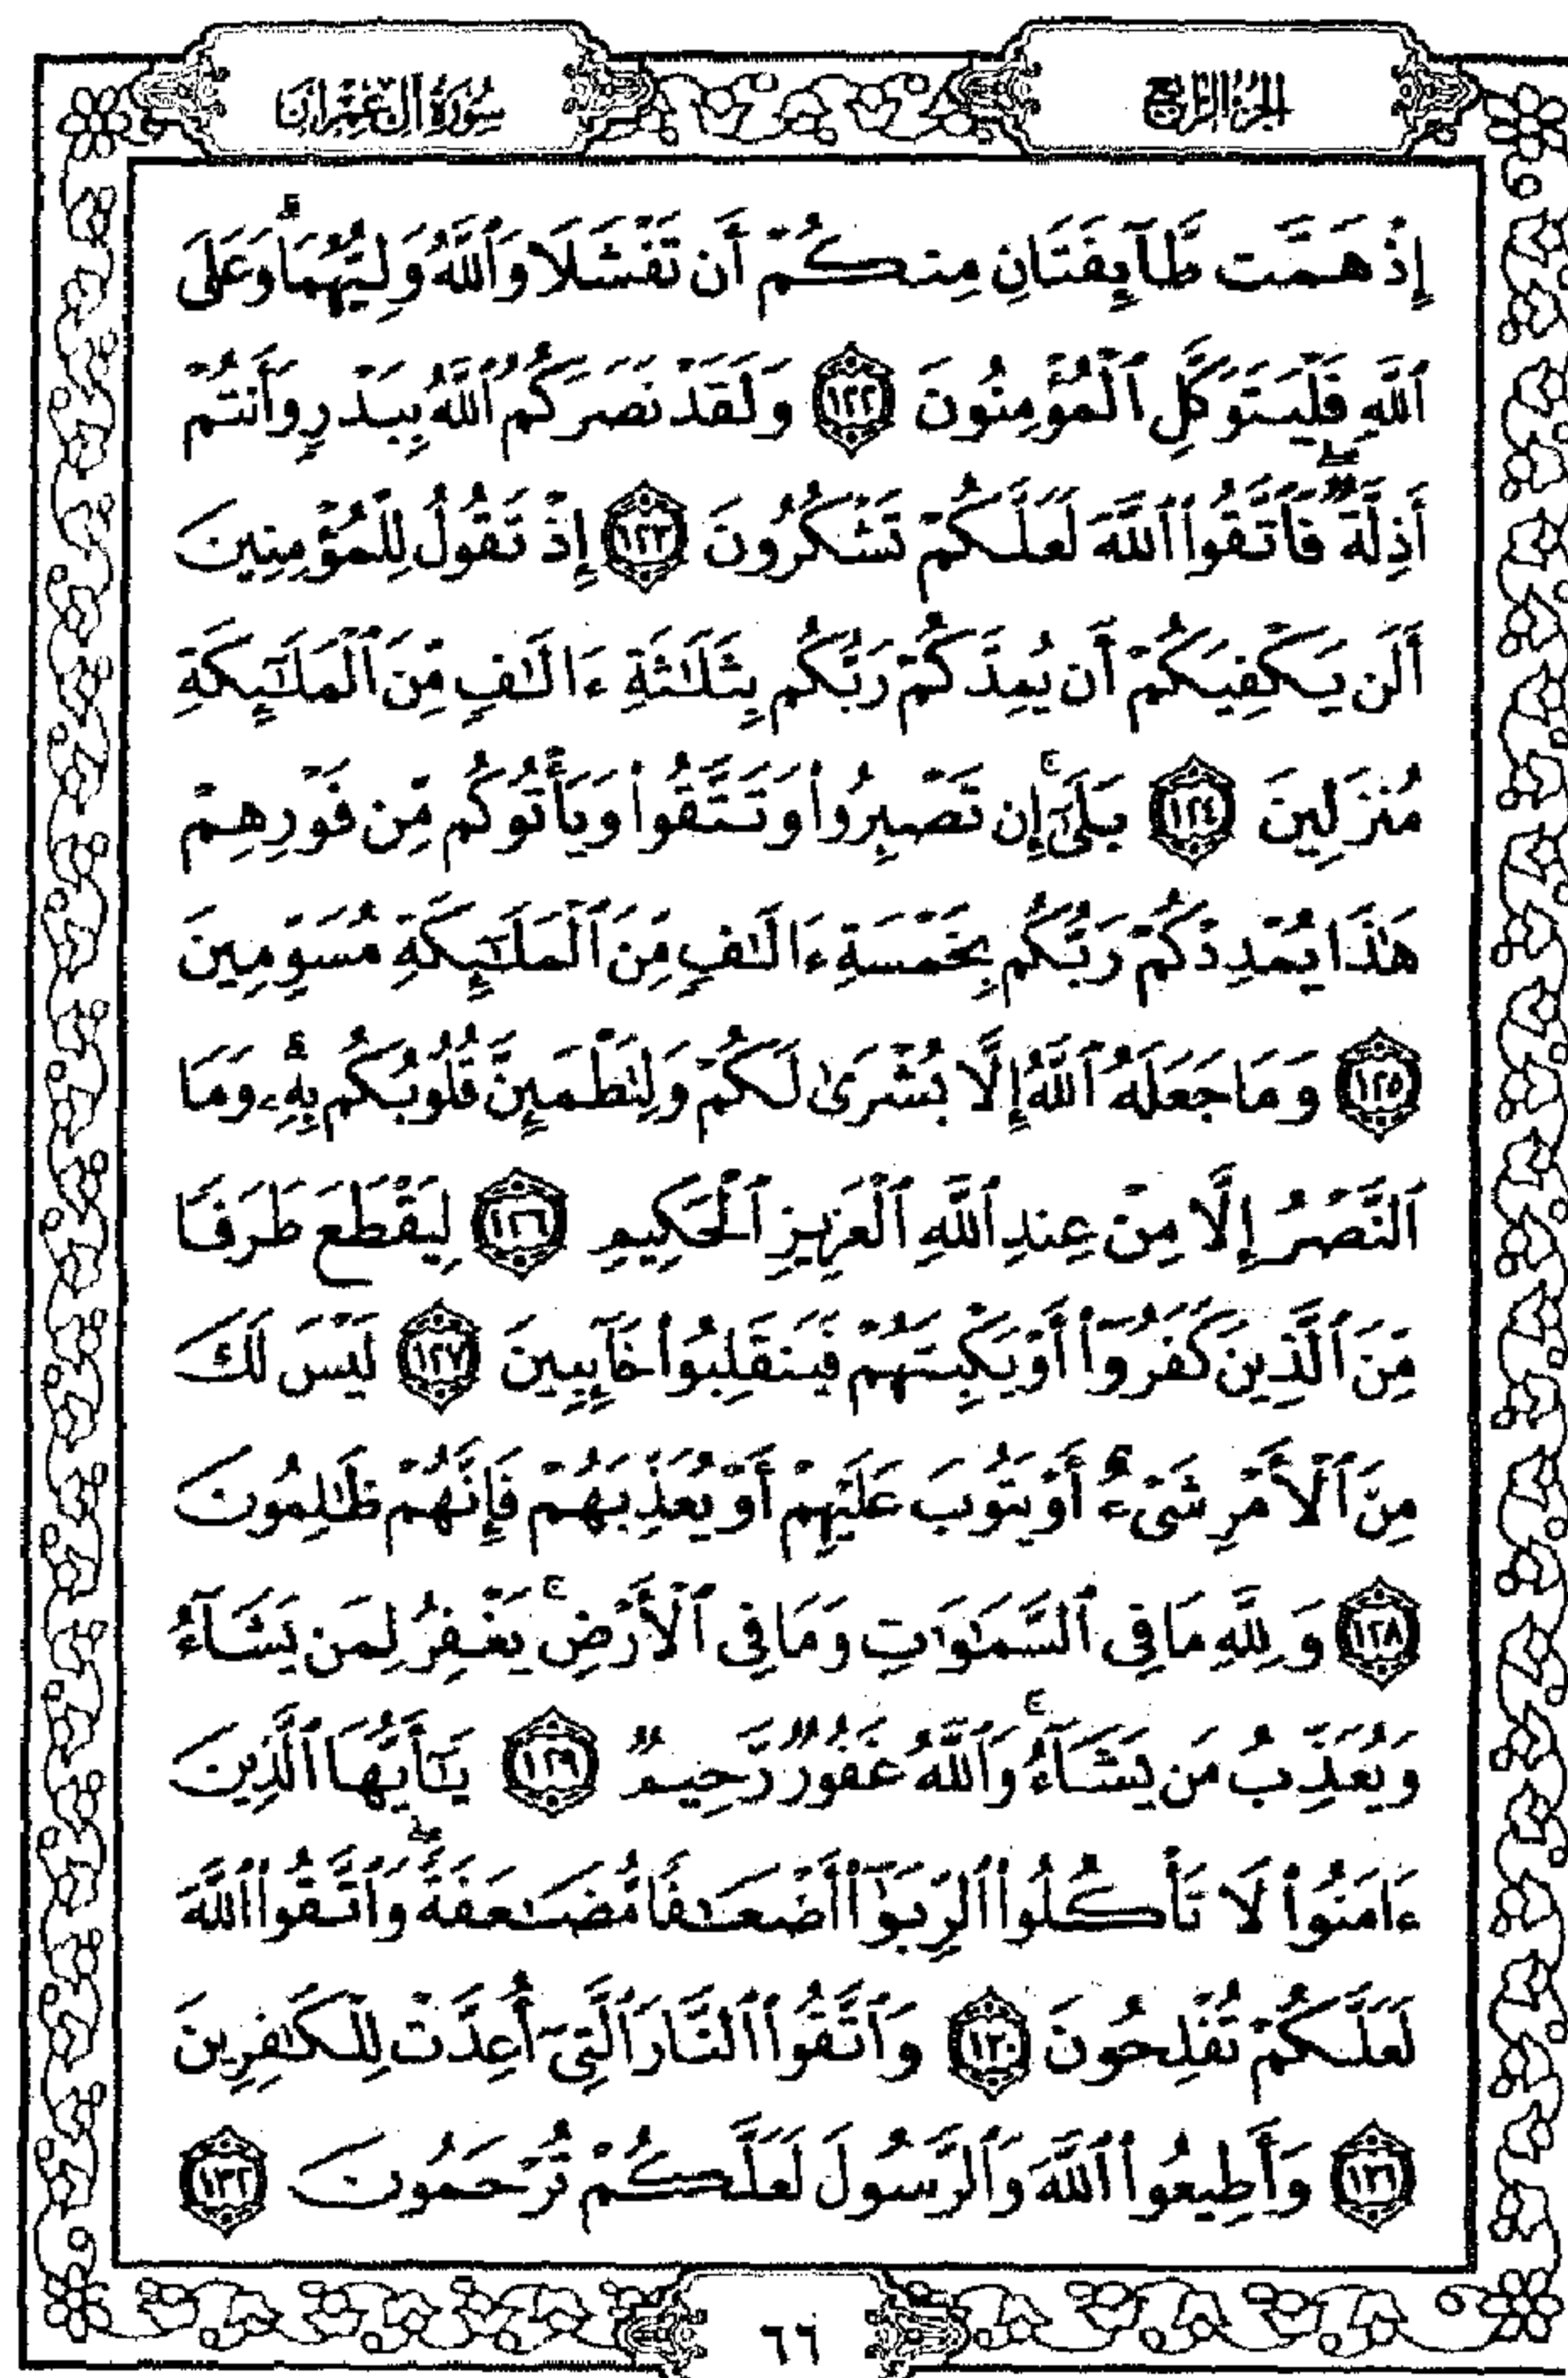 الجزء الرابع
سورة آل عمران
إِذْ هَمَّت طَّآئِفَتَانِ مِنكُمْ أَن تَفْشَلَا وَٱللَّهُ وَلِيُّهُمَاۗ وَعَلَى
ٱللَّهِ فَلْيَتَوَكَّلِ ٱلْمُؤْمِنُونَ ١٢٢ وَلَقَدْ نَصَرَكُمُ ٱللَّهُ بِبَدْرٍ وَأَنتُمْ
أَذِلَّةٌۖ فَٱتَّقُوا۟ ٱللَّهَ لَعَلَّكُمْ تَشْكُرُونَ ١٢٣ إِذْ تَقُولُ لِلْمُؤْمِنِينَ
أَلَن يَكْفِيَكُمْ أَن يُمِدَّكُمْ رَبُّكُم بِثَلَٰثَةِ ءَالَٰفٍ مِّنَ ٱلْمَلَٰٓئِكَةِ
مُنزَلِينَ ١٢٤ بَلَىٰٓۚ إِن تَصْبِرُوا۟ وَتَتَّقُوا۟ وَيَأْتُوكُم مِّن فَوْرِهِمْ
هَٰذَا يُمْدِدْكُمْ رَبُّكُم بِخَمْسَةِ ءَالَٰفٍ مِّنَ ٱلْمَلَٰٓئِكَةِ مُسَوِّمِينَ
١٢٥ وَمَا جَعَلَهُ ٱللَّهُ إِلَّا بُشْرَىٰ لَكُمْ وَلِتَطْمَئِنَّ قُلُوبُكُم بِهِۦۗ وَمَا
ٱلنَّصْرُ إِلَّا مِنْ عِندِ ٱللَّهِ ٱلْعَزِيزِ ٱلْحَكِيمِ ١٢٦ لِيَقْطَعَ طَرَفًا
مِّنَ ٱلَّذِينَ كَفَرُوٓا۟ أَوْ يَكْبِتَهُمْ فَيَنقَلِبُوا۟ خَآئِبِينَ ١٢٧ لَيْسَ لَكَ
مِنَ ٱلْأَمْرِ شَىْءٌ أَوْ يَتُوبَ عَلَيْهِمْ أَوْ يُعَذِّبَهُمْ فَإِنَّهُمْ ظَٰلِمُونَ
١٢٨ وَلِلَّهِ مَا فِى ٱلسَّمَٰوَٰتِ وَمَا فِى ٱلْأَرْضِۚ يَغْفِرُ لِمَن يَشَآءُ
وَيُعَذِّبُ مَن يَشَآءُۚ وَٱللَّهُ غَفُورٌ رَّحِيمٌ ١٢٩ يَٰٓأَيُّهَا ٱلَّذِينَ
ءَامَنُوا۟ لَا تَأْكُلُوا۟ ٱلرِّبَوٰٓا۟ أَضْعَٰفًا مُّضَٰعَفَةًۖ وَٱتَّقُوا۟ ٱللَّهَ
لَعَلَّكُمْ تُفْلِحُونَ ١٣٠ وَٱتَّقُوا۟ ٱلنَّارَ ٱلَّتِىٓ أُعِدَّتْ لِلْكَٰفِرِينَ
١٣١ وَأَطِيعُوا۟ ٱللَّهَ وَٱلرَّسُولَ لَعَلَّكُمْ تُرْحَمُونَ ١٣٢
٦٦